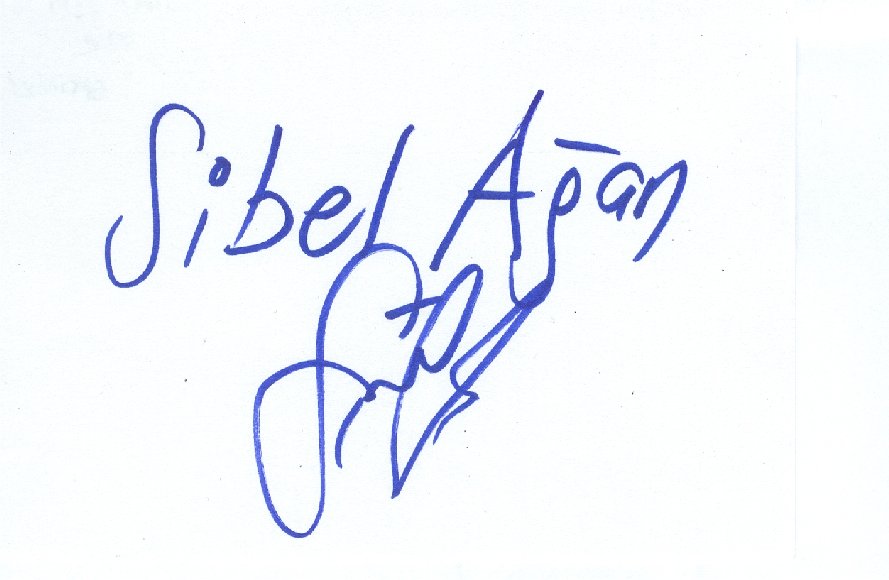 Sibel Ağan